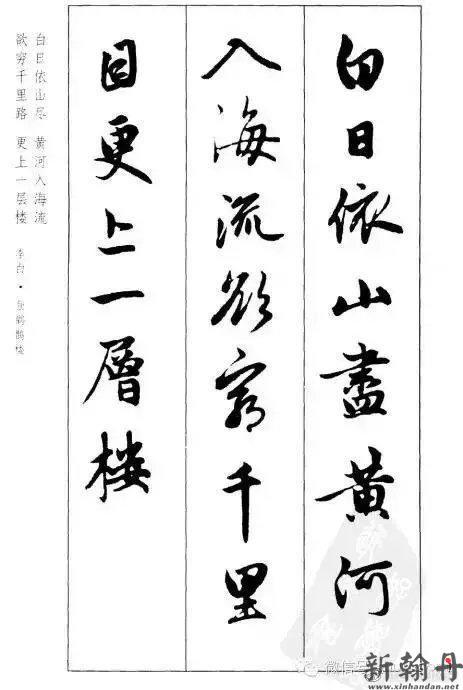 白日依山盡黄河
入海流欲窮千里
目更上一層楼
白日依山尽 黄河入海流
欲穷千里路 更上一层楼 李白·登鹳鹊楼
微信号
新翰丹
www.xinhandan.net